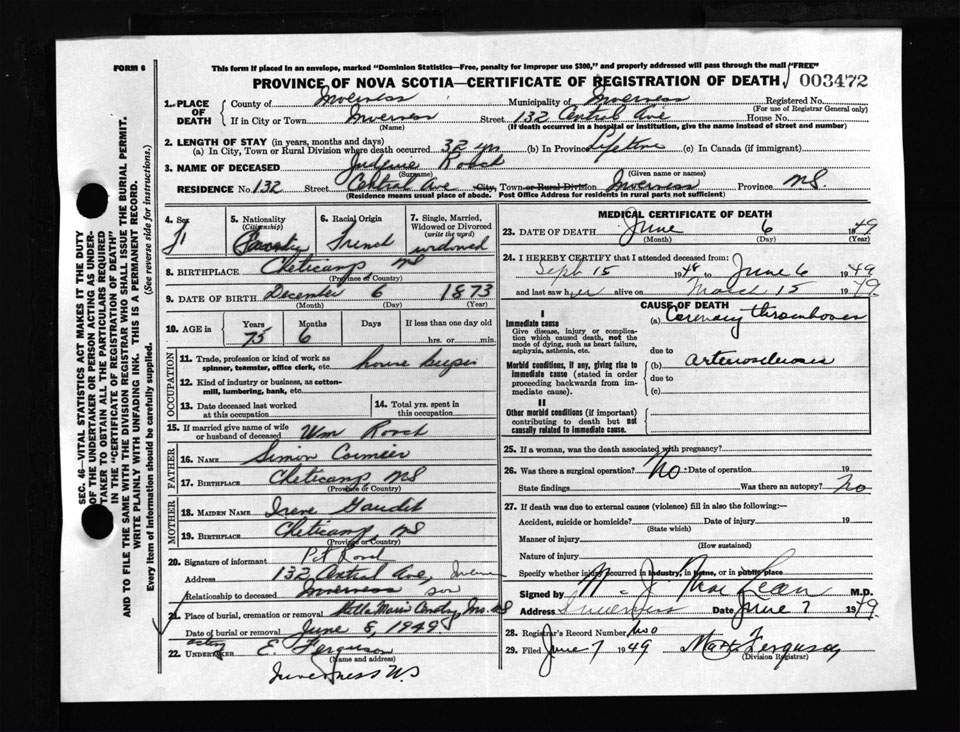 FORM 6
This form if placed in an envelope, marked "Dominion Statistics—Free, penalty for improper use $300," and properly addressed will pass through the mail "FREE"
PROVINCE OF NOVA SCOTIA—CERTIFICATE OF REGISTRATION OF DEATH. 003472
1. PLACE OF DEATH County of Inverness Municipality of Inverness Registered No.
(For use of Registrar General only)
If in City or Town Inverness Street 132 Central Ave House No.
(Name) (If death occurred in a hospital or institution, give the name instead of street and number)
2. LENGTH OF STAY (in years, months and days)
(a) In City, Town or Rural Division where death occurred 32 yrs (b) In Province Lifetime (c) In Canada (if immigrant)
3. NAME OF DECEASED Roach
(Surname) (Given name or names)
RESIDENCE No. 132 Street Central Ave City, Town or Rural Division Inverness Province NS
(Residence means usual place of abode. Post Office Address for residents in rural parts not sufficient)
4. Sex 5. Nationality (Citizenship) 6. Racial Origin 7. Single, Married, Widowed or Divorced (write the word)
French widowed
8. BIRTHPLACE Cheticamp, NS
(Province or Country)
9. DATE OF BIRTH December 6 1873
(Month) (Day) (Year)
10. AGE in Years Months Days If less than one day old
75 6 hrs. or min.
OCCUPATION
11. Trade, profession or kind of work as spinner, teamster, office clerk, etc. house keeper
12. Kind of industry or business, as cotton-mill, lumbering, bank, etc.
13. Date deceased last worked at this occupation 14. Total yrs. spent in this occupation
15. If married give name of wife or husband of deceased Wm Roach
FATHER
16. NAME Simon Cormier
17. BIRTHPLACE Cheticamp NS
(Province or Country)
MOTHER
18. MAIDEN NAME Irene Gaudet
19. BIRTHPLACE Cheticamp, NS
(Province or Country)
20. Signature of informant Pat Roach
Address 132 Central Ave, Inverness
Relationship to deceased son
21. Place of burial, cremation or removal Stella Maris NS
Date of burial or removal June 8, 1949
22. acting UNDERTAKER E. Ferguson
(Name and address)
Inverness NS
MEDICAL CERTIFICATE OF DEATH
23. DATE OF DEATH June 6 1949
(Month) (Day) (Year)
24. I HEREBY CERTIFY that I attended deceased from:
Sept 15 1948 to June 6 1949
and last saw her alive on March 15 1949.
CAUSE OF DEATH
I
Immediate cause (a) Coronary thrombosis
Give disease, injury or complication which caused death, not the mode of dying, such as heart failure, asphyxia, asthenia, etc.
due to
Morbid conditions, if any, giving rise to immediate cause (stated in order proceeding backwards from immediate cause). (b) arteriosclerosis
due to
(c)
II
Other morbid conditions (if important) contributing to death but not causally related to immediate cause.
25. If a woman, was the death associated with pregnancy?
26. Was there a surgical operation? No Date of operation 19
State findings Was there an autopsy? No
27. If death was due to external causes (violence) fill in also the following:—
Accident, suicide or homicide? Date of injury 19
(State which)
Manner of injury
(How sustained)
Nature of injury
Specify whether injury occurred in industry, in home, or in public place
Signed by N. J. MacLean M.D.
Address Inverness Date June 7 1949
28. Registrar's Record Number two
29. Filed June 7 1949 Ferguson
(Division Registrar)
SEC. 46—VITAL STATISTICS ACT MAKES IT THE DUTY OF THE UNDERTAKER OR PERSON ACTING AS UNDERTAKER TO OBTAIN ALL THE PARTICULARS REQUIRED IN THE "CERTIFICATE OF REGISTRATION OF DEATH" AND TO FILE THE SAME WITH THE DIVISION REGISTRAR WHO SHALL ISSUE THE BURIAL PERMIT.
WRITE PLAINLY WITH UNFADING INK. THIS IS A PERMANENT RECORD.
Every item of information should be carefully supplied. (See reverse side for instructions.)